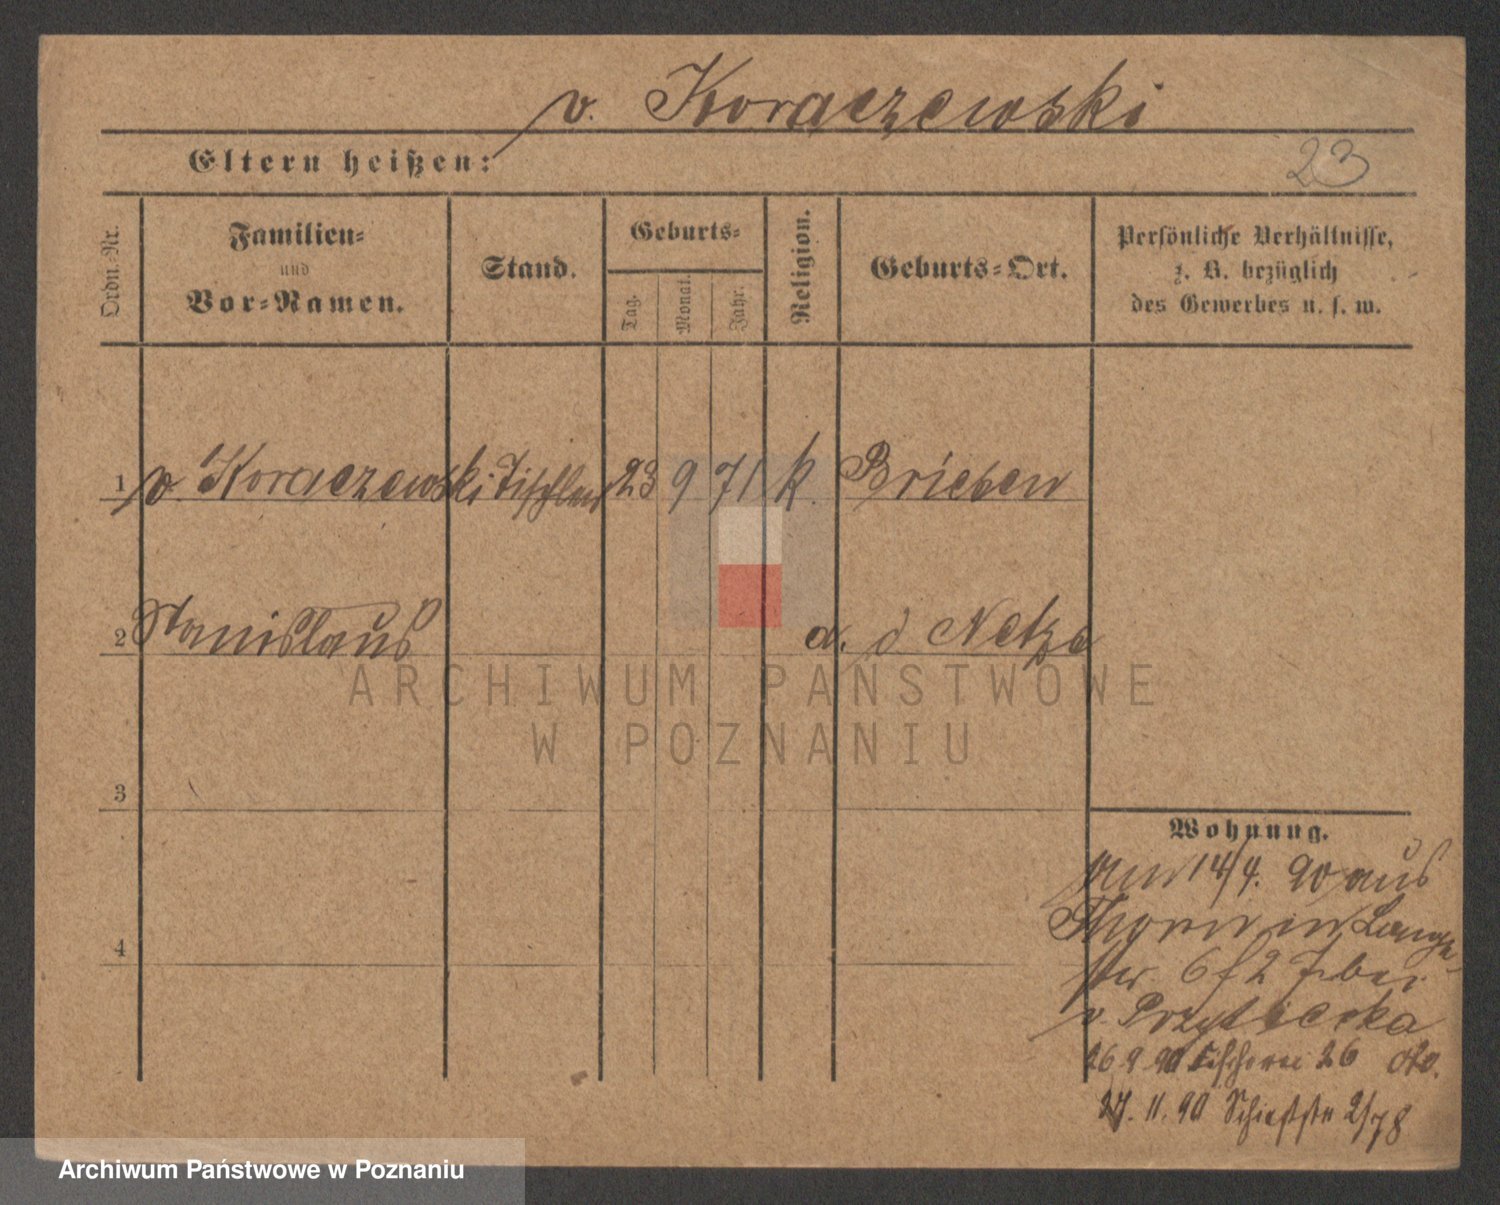 v. Koraczewski
Eltern heißen:
23
Ordn.-Nr.
Familien-
und
Vor-Namen.
Stand.
Geburts-
Tag.
Monat.
Jahr.
Religion.
Geburts-Ort.
Persönliche Verhältnisse,
z. B. bezüglich
des Gewerbes u. s. w.
1 v Koraczewski Tischler 23 9 71 k. Briesen
2 Stanislaus a. d Netze
ARCHIWUM PAŃSTWOWE
W POZNANIU
3
4
Wohnung.
am 14/4. 90 aus
Thorn in Lange
str 6 f 2 T. bei
v.
26 9 90 26
27. 11. 90 Schießstr 2/78
Archiwum Państwowe w Poznaniu